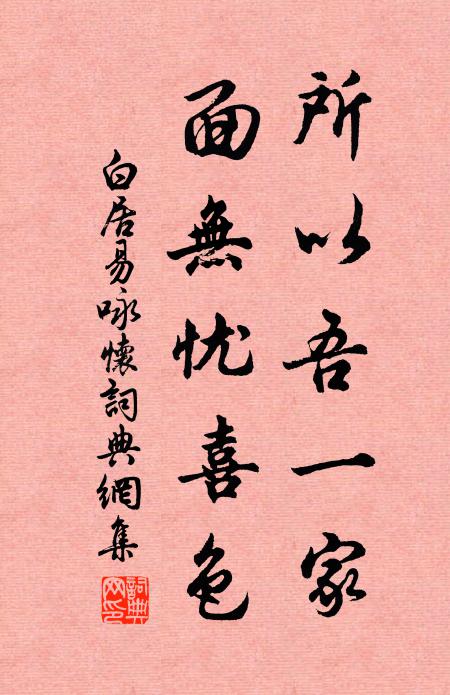 所以吾一家
面無忧喜色
白居易咏懷詞典網集
詞典网印